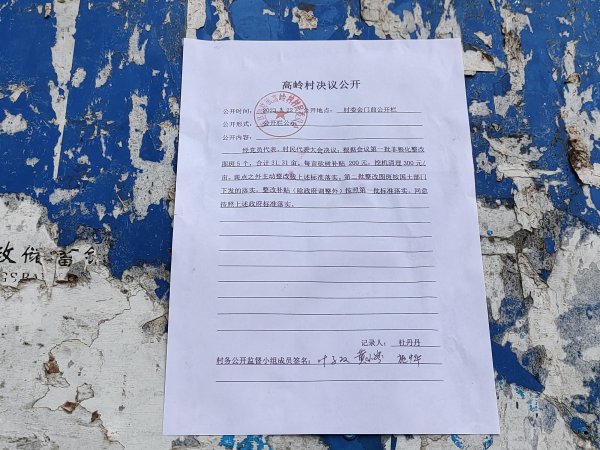 高岭村决议公开
公开时间： 2023 22 公开地点： 村委会门前公开栏
公开形式： 公开栏公示
公开内容：
经党员代表、村民代表大会决议，根据会议第一批非粮化整改
图斑5个，合计31.31亩，每亩砍树补贴200元，挖机清理300元/
亩，斑点之外主动整改按上述标准落实。第二批整改图斑按国土部门
下发的落实，整改补贴（除政府调整外）按照第一批标准落实，同意
按照上述政府标准落实。
记录人： 杜丹丹
村务公开监督小组成员签名：